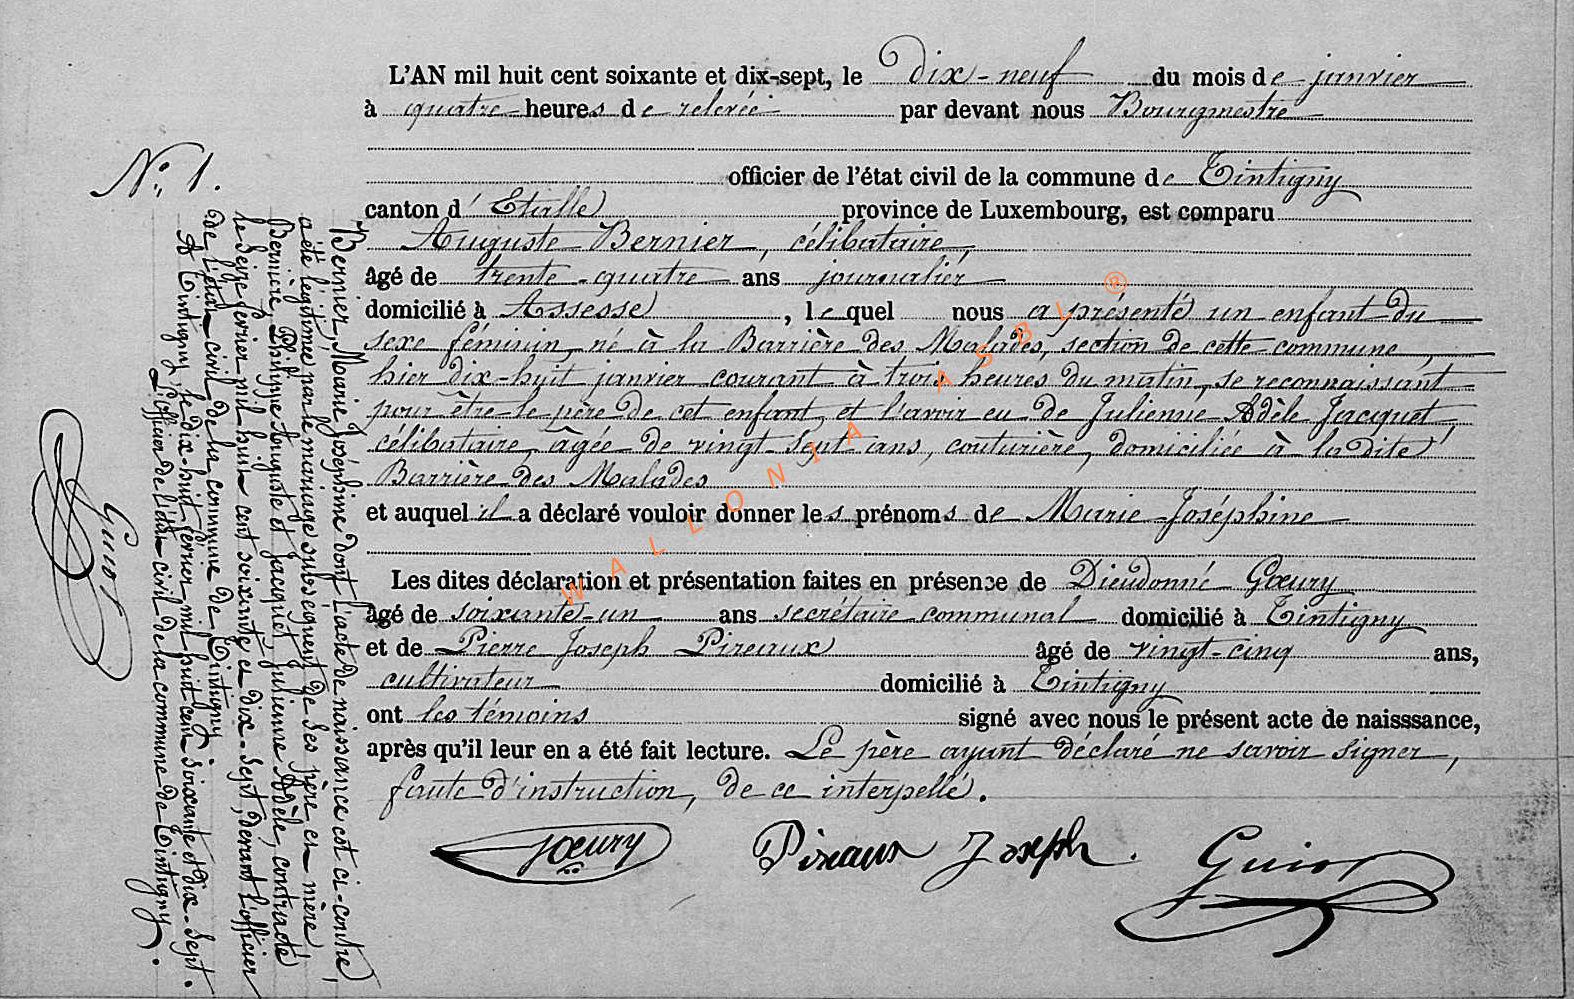 L'AN mil huit cent soixante et dix-sept, le dix-neuf du mois de janvier
à quatre heures de relevée par devant nous Bourgmestre
officier de l'état civil de la commune de Tintigny
canton d'Etalle province de Luxembourg, est comparu
Auguste Bernier, célibataire,
âgé de trente-quatre ans journalier
domicilié à Assesse, lequel nous a présenté un enfant du
sexe féminin, né à la Barrière des Malades, section de cette commune,
hier dix-huit janvier courant à trois heures du matin, se reconnaissant
pour être le père de cet enfant, et l'avoir eu de Julienne Adèle Jacquet,
célibataire, âgée de vingt-sept ans, couturière, domiciliée à la dite
Barrière des Malades
et auquel il a déclaré vouloir donner les prénoms de Marie-Joséphine
Les dites déclaration et présentation faites en présence de Dieudonné Gœury
âgé de soixante-un ans secrétaire communal domicilié à Tintigny
et de Pierre Joseph Pireaux âgé de vingt-cinq ans,
cultivateur domicilié à Tintigny
ont les témoins signé avec nous le présent acte de naisssance,
après qu'il leur en a été fait lecture. Le père ayant déclaré ne savoir signer,
faute d'instruction, de ce interpellé.
Gœury Pireaux Joseph. Guiot
N° 1.
Bernier, Marie Joséphine dont l'acte de naissance est ci-contre,
a été légitimée par le mariage subséquent de ses père et mère,
Bernier, Philippe Auguste et Jacquet, Julienne Adèle, contracté
le seize février mil huit cent soixante et dix-sept, devant l'officier
de l'état civil de la commune de Tintigny.
A Tintigny, le dix-huit février mil huit cent soixante et dix-sept.
L'officier de l'état civil de la commune de Tintigny.
Guiot
WALLONIA ASBL ®